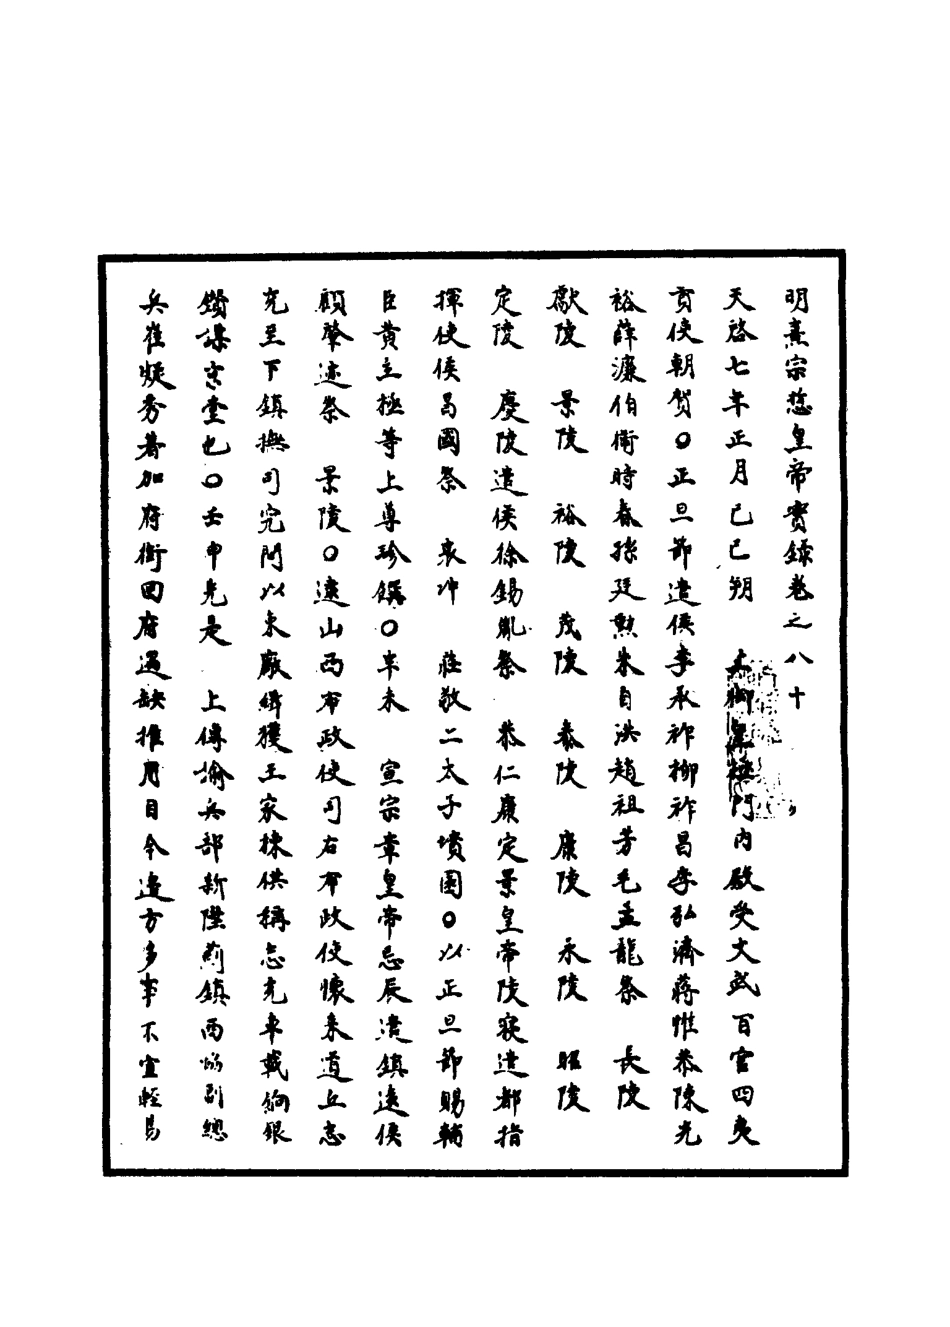 明熹宗悊皇帝實錄卷之八十
天啓七年正月己巳朔　上御皇極門內殿受文武百官四夷
貢使朝賀○正旦節遣侯李承祚柳祚昌李弘濟蔣惟恭陳光
裕薛濂伯衛時春孫廷勳朱自洪趙祖芳毛孟龍祭　長陵
獻陵　景陵　裕陵　茂陵　泰陵　康陵　永陵　昭陵
定陵　慶陵遣侯徐錫胤祭　恭仁康定景皇帝陵寢遣都指
揮使侯昌國祭　哀冲　莊敬二太子墳園○以正旦節賜輔
臣黃立極等上尊珍饌○辛未　宣宗章皇帝忌辰遣鎮遠侯
顧肇迹祭　景陵○逮山西布政使司右布政使懷來道丘志
充至下鎮撫司究問以東廠緝獲王家棟供稱志充車載餉銀
鑽謀京堂也○壬申先是　上傳諭兵部新陞薊鎮西協副總
兵崔凝秀著加府銜回府遇缺推用目今邊方多事不宜輕易